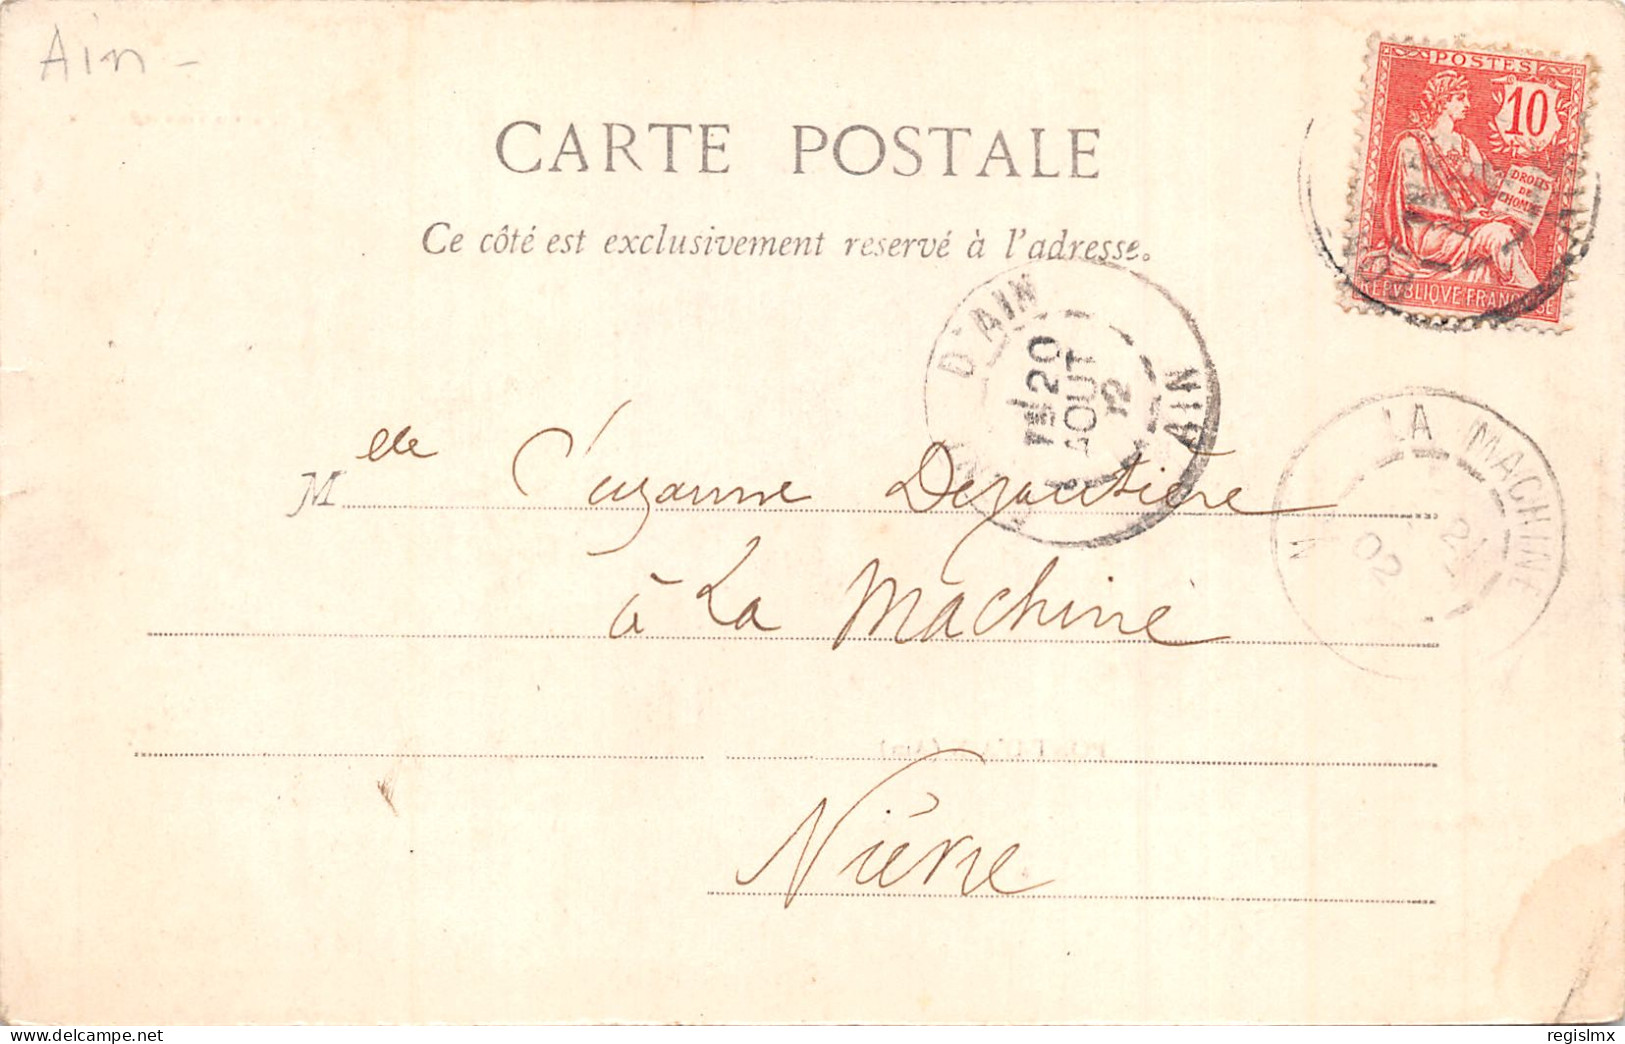 Ain -
POSTES
10
DROITS
DE
L'HOMME
REPVBLIQVE FRANÇAISE
AIN
CARTE POSTALE
Ce côté est exclusivement reservé à l'adresse.
D'AIN
20
AOUT
AIN
LA MACHINE
21
02
Mlle Suzanne Dezautière
à La Machine
Nièvre
delcampe.net
regislmx